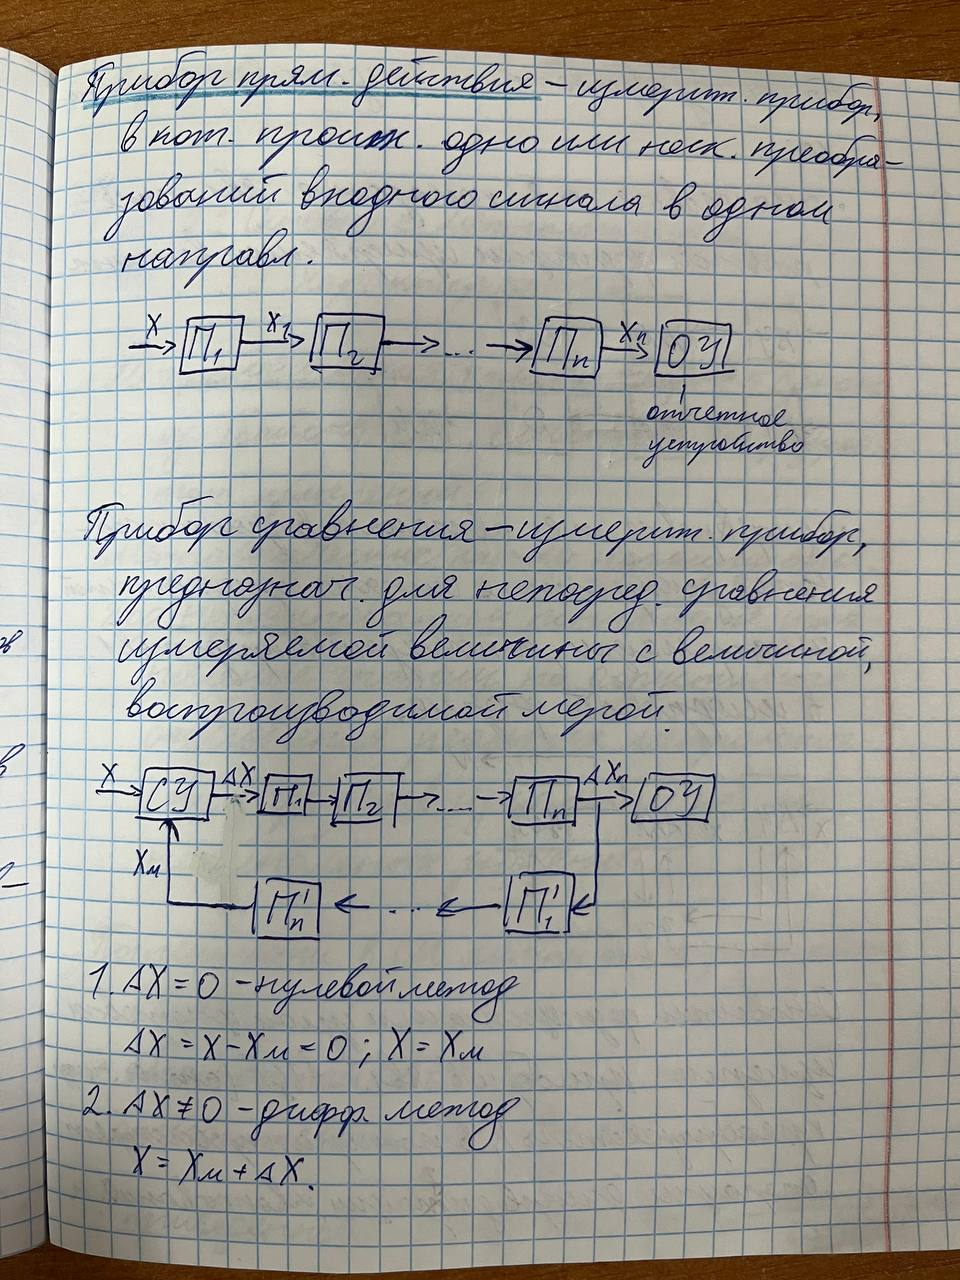 Прибор прям. действия – измерит. прибор,
в кот. происх. одно или неск. преобра-
зований входного сигнала в одном
направл.
X П₁ X₁ П₂ ... Пn Xn ОУ
отсчетное
устройство
Прибор сравнения – измерит. прибор,
предназнач. для непосред. сравнения
измеряемой величины с величиной,
воспроизводимой мерой.
X СУ ΔX П₁ П₂ .... Пn ΔXn ОУ
Xм
П'n ... П'₁
1. ΔX = 0 – нулевой метод
ΔX = X – Xм = 0 ; X = Xм
2. ΔX ≠ 0 – дифф. метод
X = Xм + ΔX.